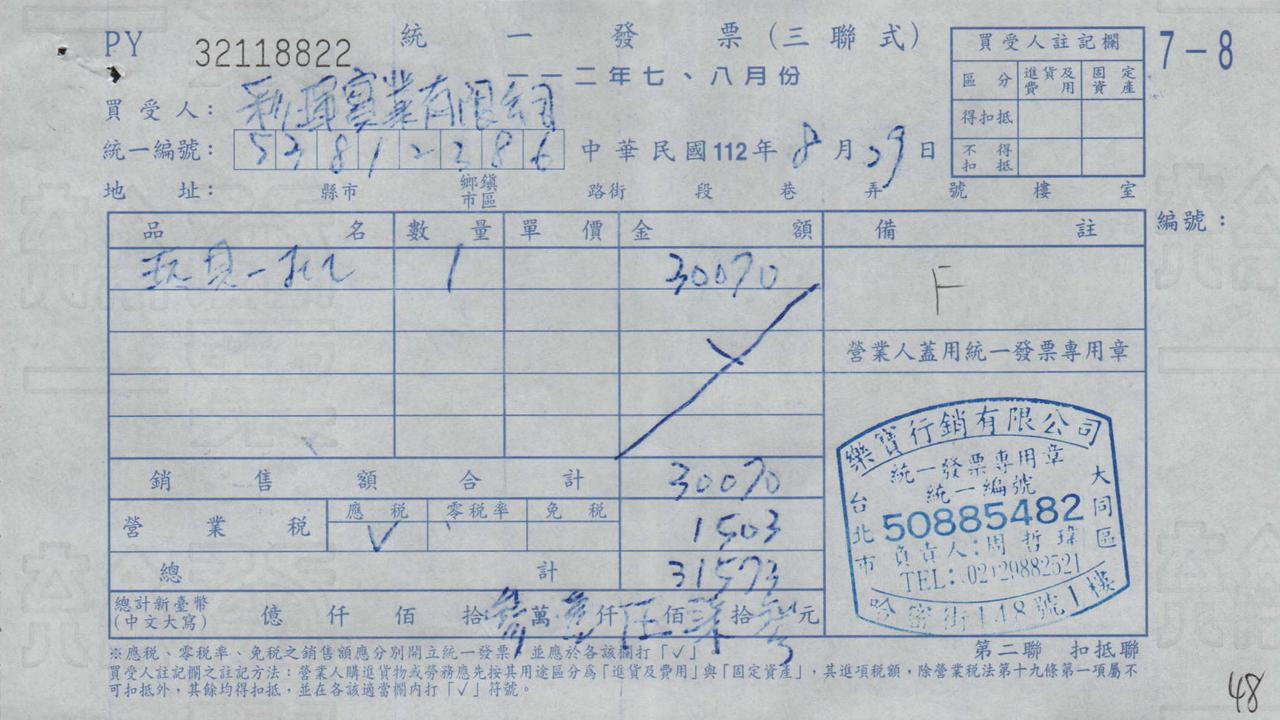 PY 32118822 統一發票(三聯式)
一一二年七、八月份
7-8
買受人註記欄
區分 進貨及費用 固定資產
得扣抵
不得扣抵
買受人:利琿實業有限公司
統一編號:53812286 中華民國112年8月29日
地址: 縣市 鄉鎮市區 路街 段 巷 弄 號 樓 室
品名 數量 單價 金額 備註 編號:
玩具一批 1 30070 F
營業人蓋用統一發票專用章
銷售額合計 30070
營業稅 應稅 零稅率 免稅 1503
√
總計 31573
總計新臺幣(中文大寫) 億 仟 佰 拾參萬壹仟伍佰柒拾參元
樂寶行銷有限公司
統一發票專用章
統一編號
50885482
台北市 大同區
負責人:周哲瑋
TEL:02129882521
哈密街148號1樓
※應稅、零稅率、免稅之銷售額應分別開立統一發票,並應於各該欄打「√」
第二聯 扣抵聯
買受人註記欄之註記方法:營業人購進貨物或勞務應先按其用途區分為「進貨及費用」與「固定資產」,其進項稅額,除營業稅法第十九條第一項屬不
可扣抵外,其餘均得扣抵,並在各該適當欄內打「√」符號。
48